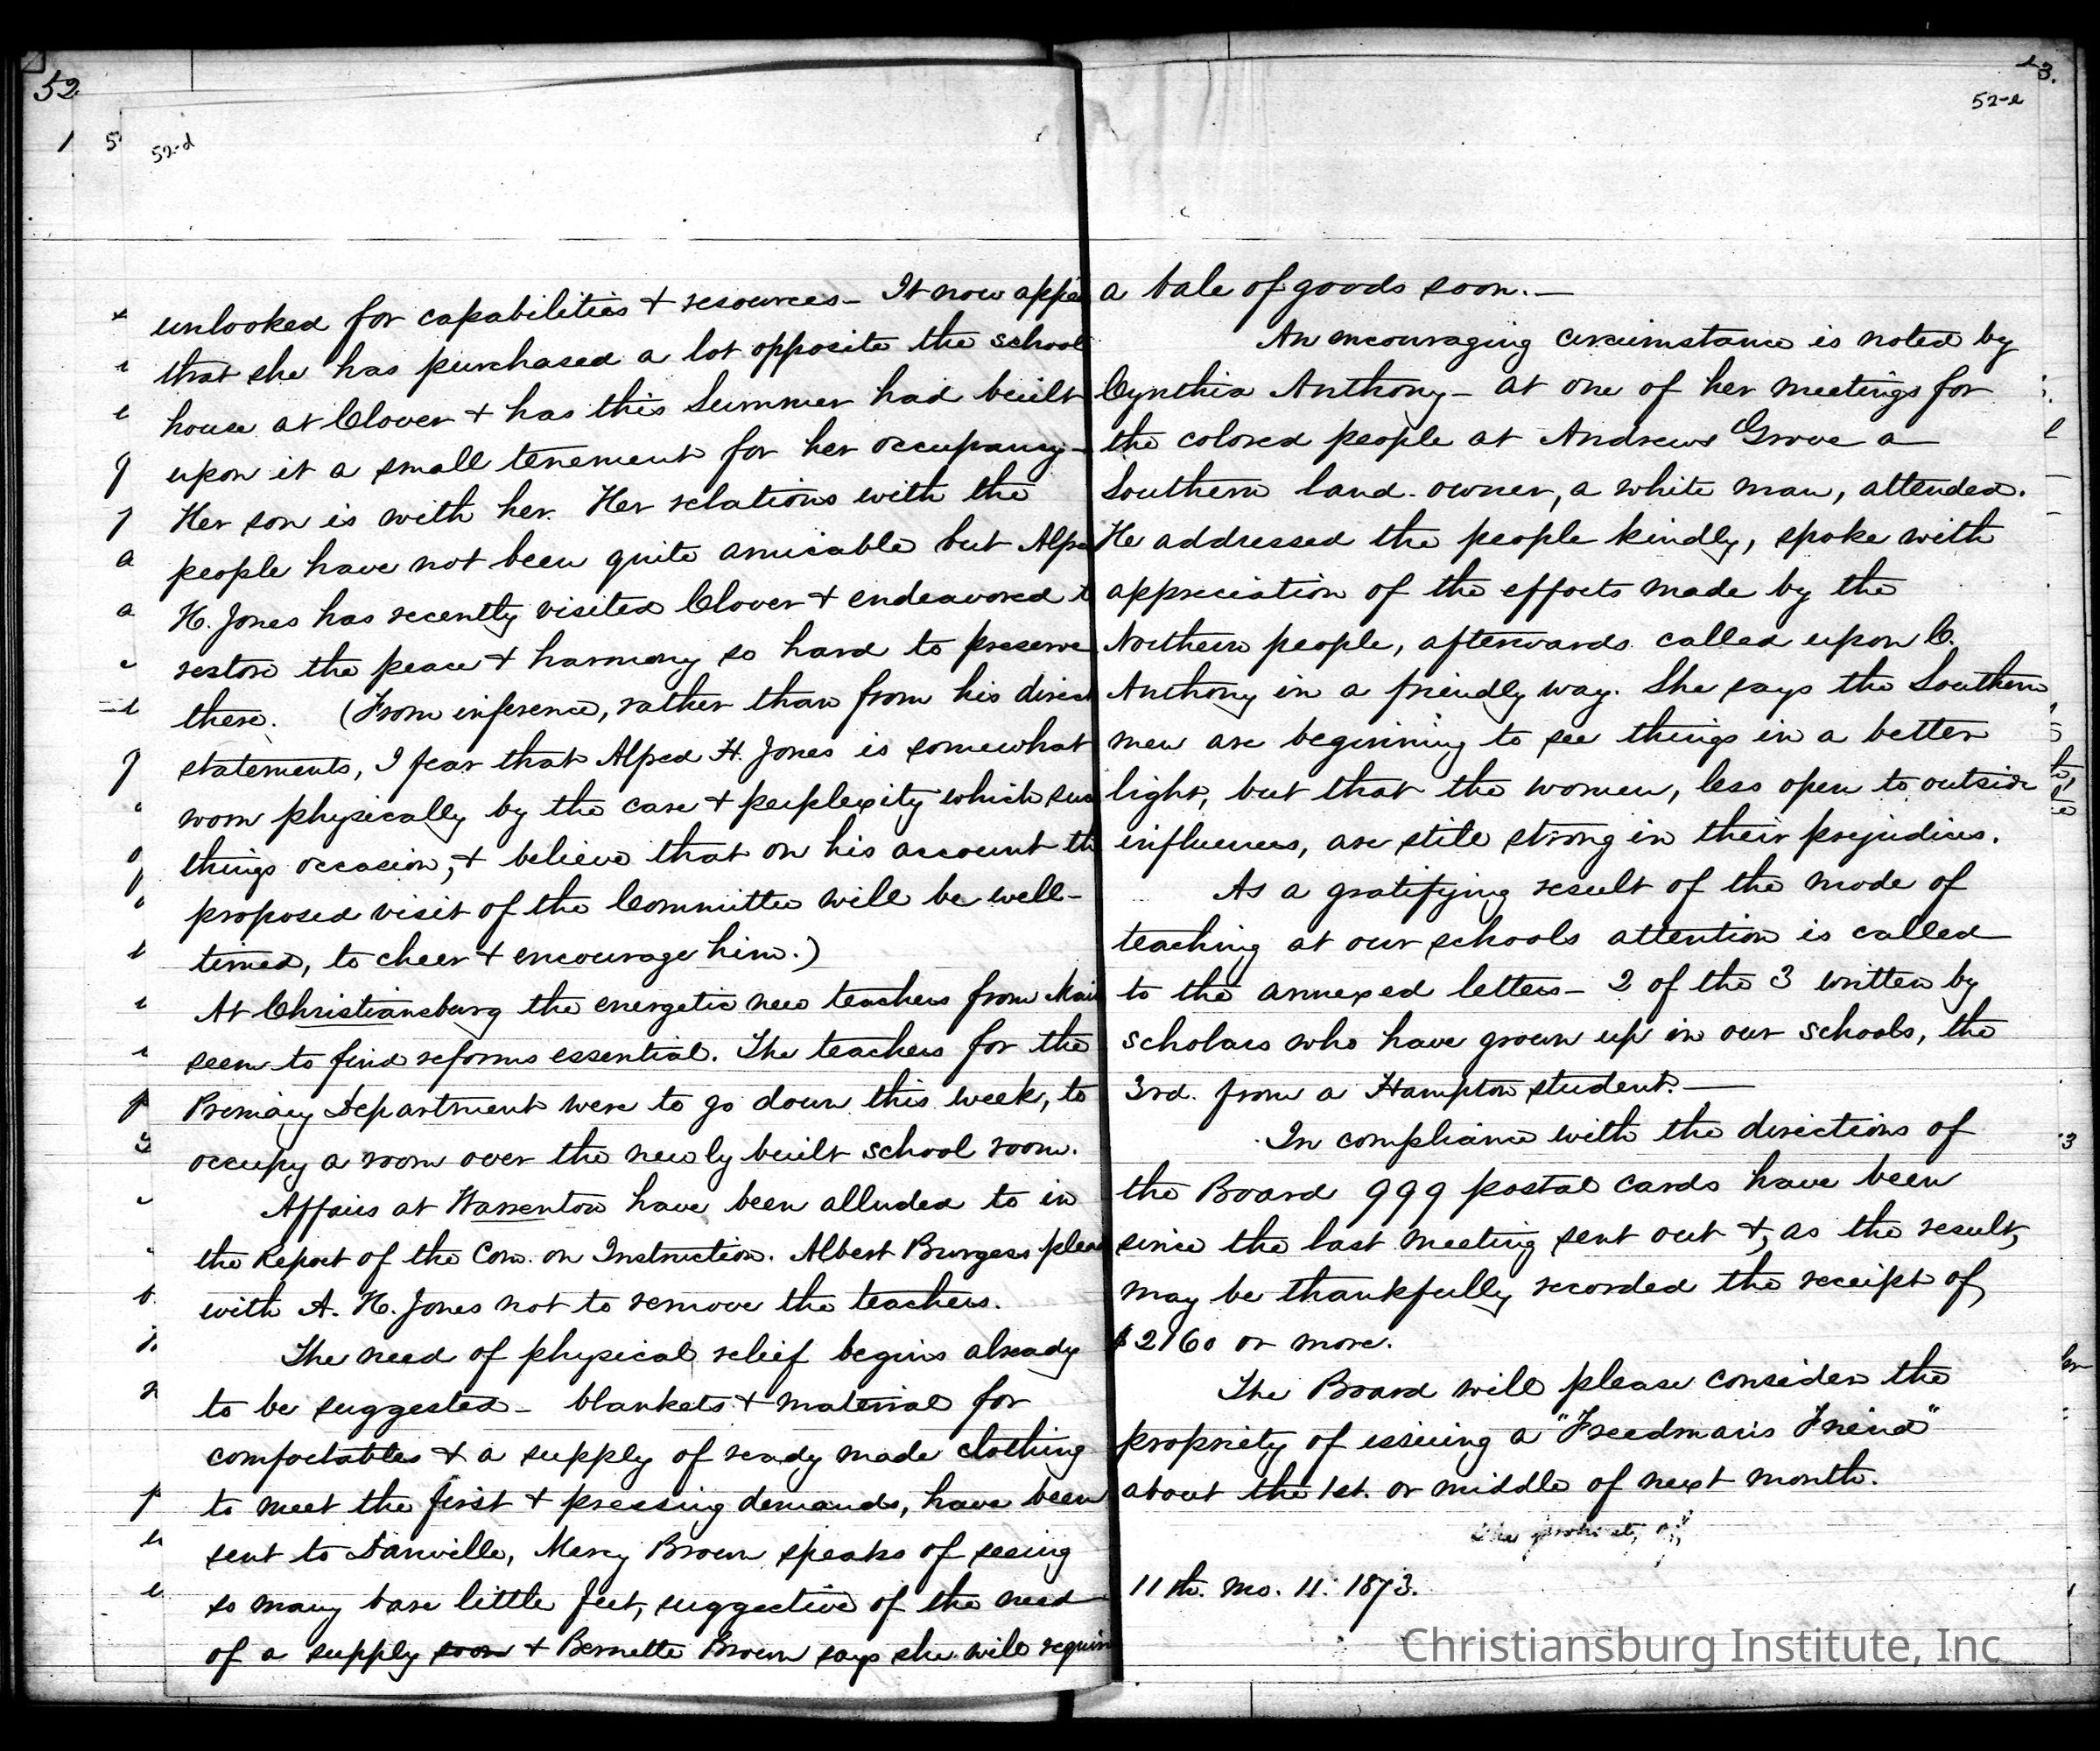 52
52-d
unlooked for capabilities & resources - It now appe
that she has purchased a lot opposite the school
house at Clover & has this Summer had built
upon it a small tenement for her occupancy -
Her son is with her. Her relations with the
people have not been quite amicable but Alfre
H. Jones has recently visited Clover & endeavored t
restore the peace & harmony so hard to preserve
there. (From inference, rather than from his direct
statements, I fear that Alfred H. Jones is somewhat
worn physically by the care & perplexity which suc
things occasion, & believe that on his account th
proposed visit of the Committee will be well-
timed, to cheer & encourage him.)
At Christiansburg the energetic new teachers from Mai
seem to find reforms essential. The teachers for the
Primary Department were to go down this week, to
occupy a room over the newly built school room.
Affairs at Warrenton have been alluded to in
the Report of the Com. on Instruction. Albert Burgess plea
with A. H. Jones not to remove the teachers.
The need of physical relief begins already
to be suggested - blankets & material for
comfortables & a supply of ready made clothing
to meet the first & pressing demands, have been
sent to Danville, Mercy Brown speaks of seeing
so many bare little feet, suggestive of the need
of a supply soon & Bernette Brown says she will requir
3.
52-e
a bale of goods soon. —
An encouraging circumstance is noted by
Cynthia Anthony - at one of her meetings for
the colored people at Andrews Grove a
Southern land-owner, a white man, attended.
He addressed the people kindly, spoke with
appreciation of the efforts made by the
Northern people, afterwards called upon C.
Anthony in a friendly way. She says the Southern
men are beginning to see things in a better
light, but that the women, less open to outside
influences, are still strong in their prejudices.
As a gratifying result of the mode of
teaching at our schools attention is called
to the annexed letters - 2 of the 3 written by
scholars who have grown up in our schools, the
3rd. from a Hampton student. —
In compliance with the directions of
the Board 999 postal cards have been
since the last meeting sent out &, as the result,
may be thankfully recorded the receipt of
$2160 or more.
The Board will please consider the
propriety of issuing a "Freedman's Friend"
about the 1st. or middle of next month.
11th. mo. 11. 1873.
Christiansburg Institute, Inc